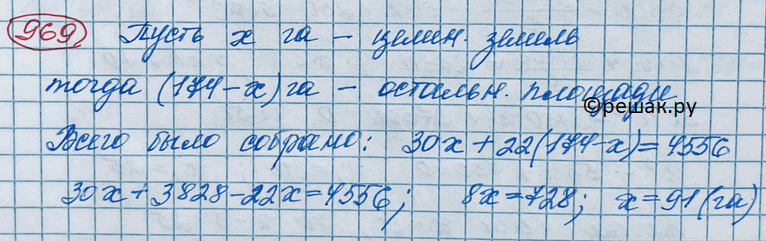 969. Пусть x га – целин. земель
тогда (174-x) га – остальн. площади
©решак.ру
Всего было собрано: 30x+22(174-x)=4556
30x+3828-22x=4556; 8x=728; x=91(га)